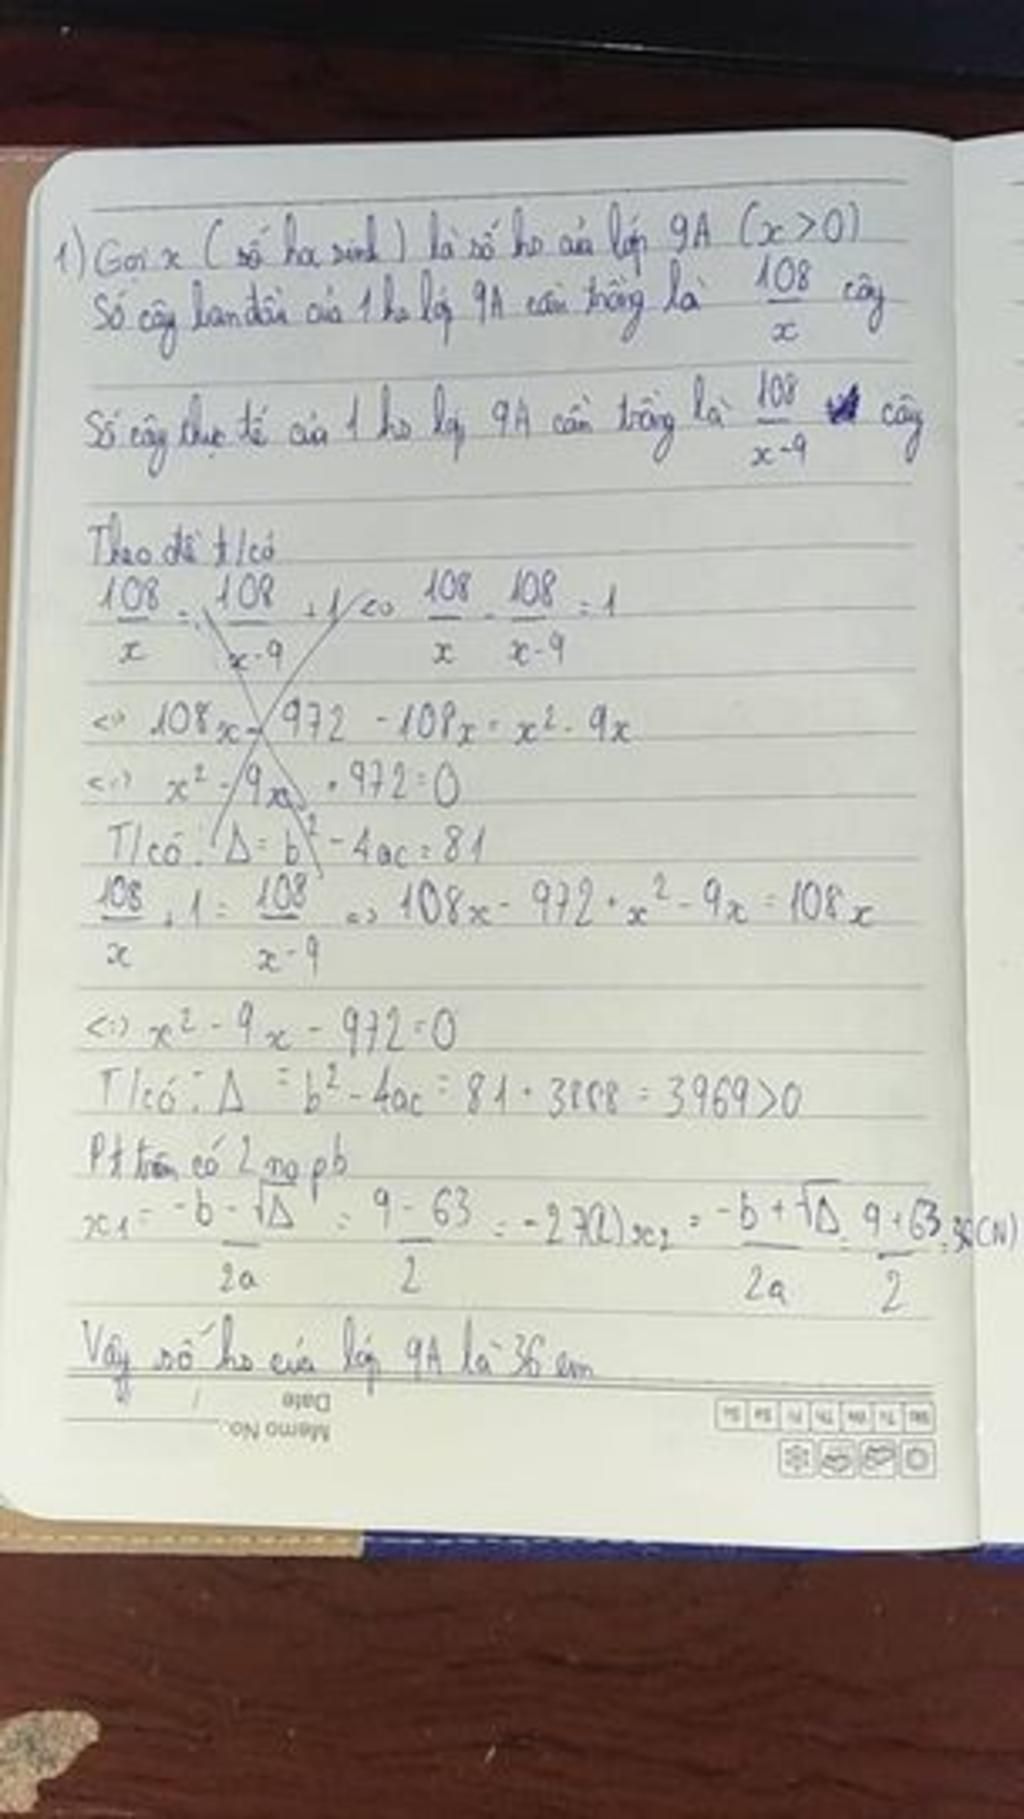 1) Gọi x (số học sinh) là số hs của lớp 9A (x>0)
Số cây ban đầu của 1 hs lớp 9A cần trồng là 108/x cây
Số cây thực tế của 1 hs lớp 9A cần trồng là 108/x-9 cây
Theo đề t/có
108/x = 108/x-9 + 1 <=> 108/x - 108/x-9 = 1
<=> 108x - 972 - 108x = x² - 9x
<=> x² - 9x + 972 = 0
T/có: Δ = b² - 4ac = 81
108/x + 1 = 108/x-9 <=> 108x - 972 + x² - 9x = 108x
<=> x² - 9x - 972 = 0
T/có: Δ = b² - 4ac = 81 + 3888 = 3969 > 0
Pt trên có 2 no pb
x1 = -b - √Δ/2a = 9 - 63/2 = -27(L) x2 = -b + √Δ/2a = 9 + 63/2 = 36(N)
Vậy số hs của lớp 9A là 36 em
Memo No.
Date /
Mo Tu We Th Fr Sa Su